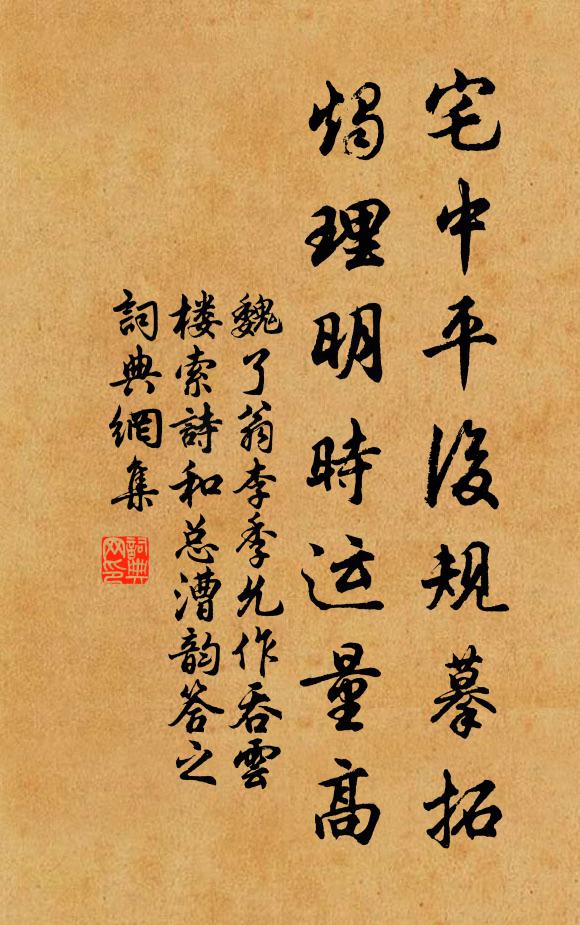 宅中平後規摹拓
燭理明時运量高
魏了翁李季允作吞雲
楼索詩和总漕韵答之
詞典網集
詞典
网印